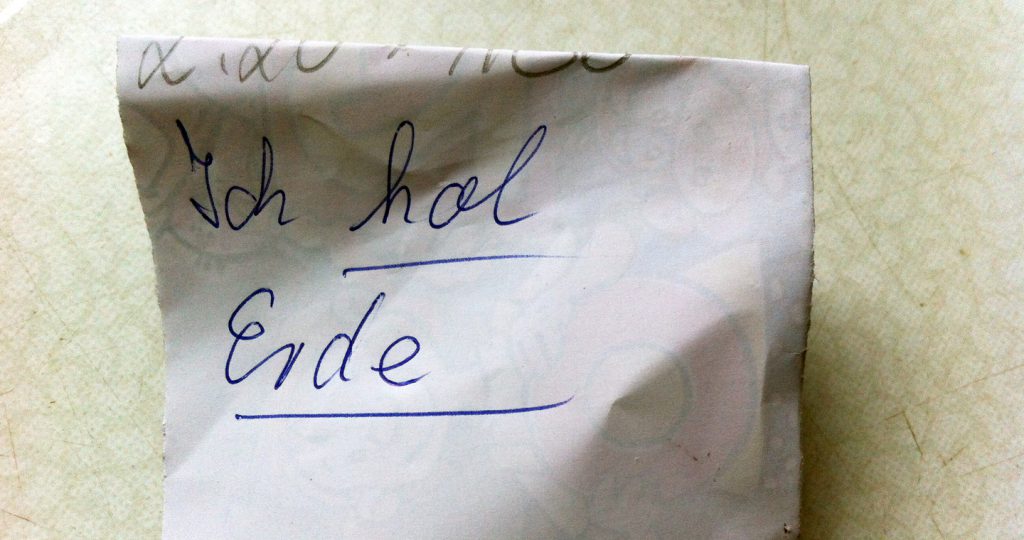 Ich hol
Erde